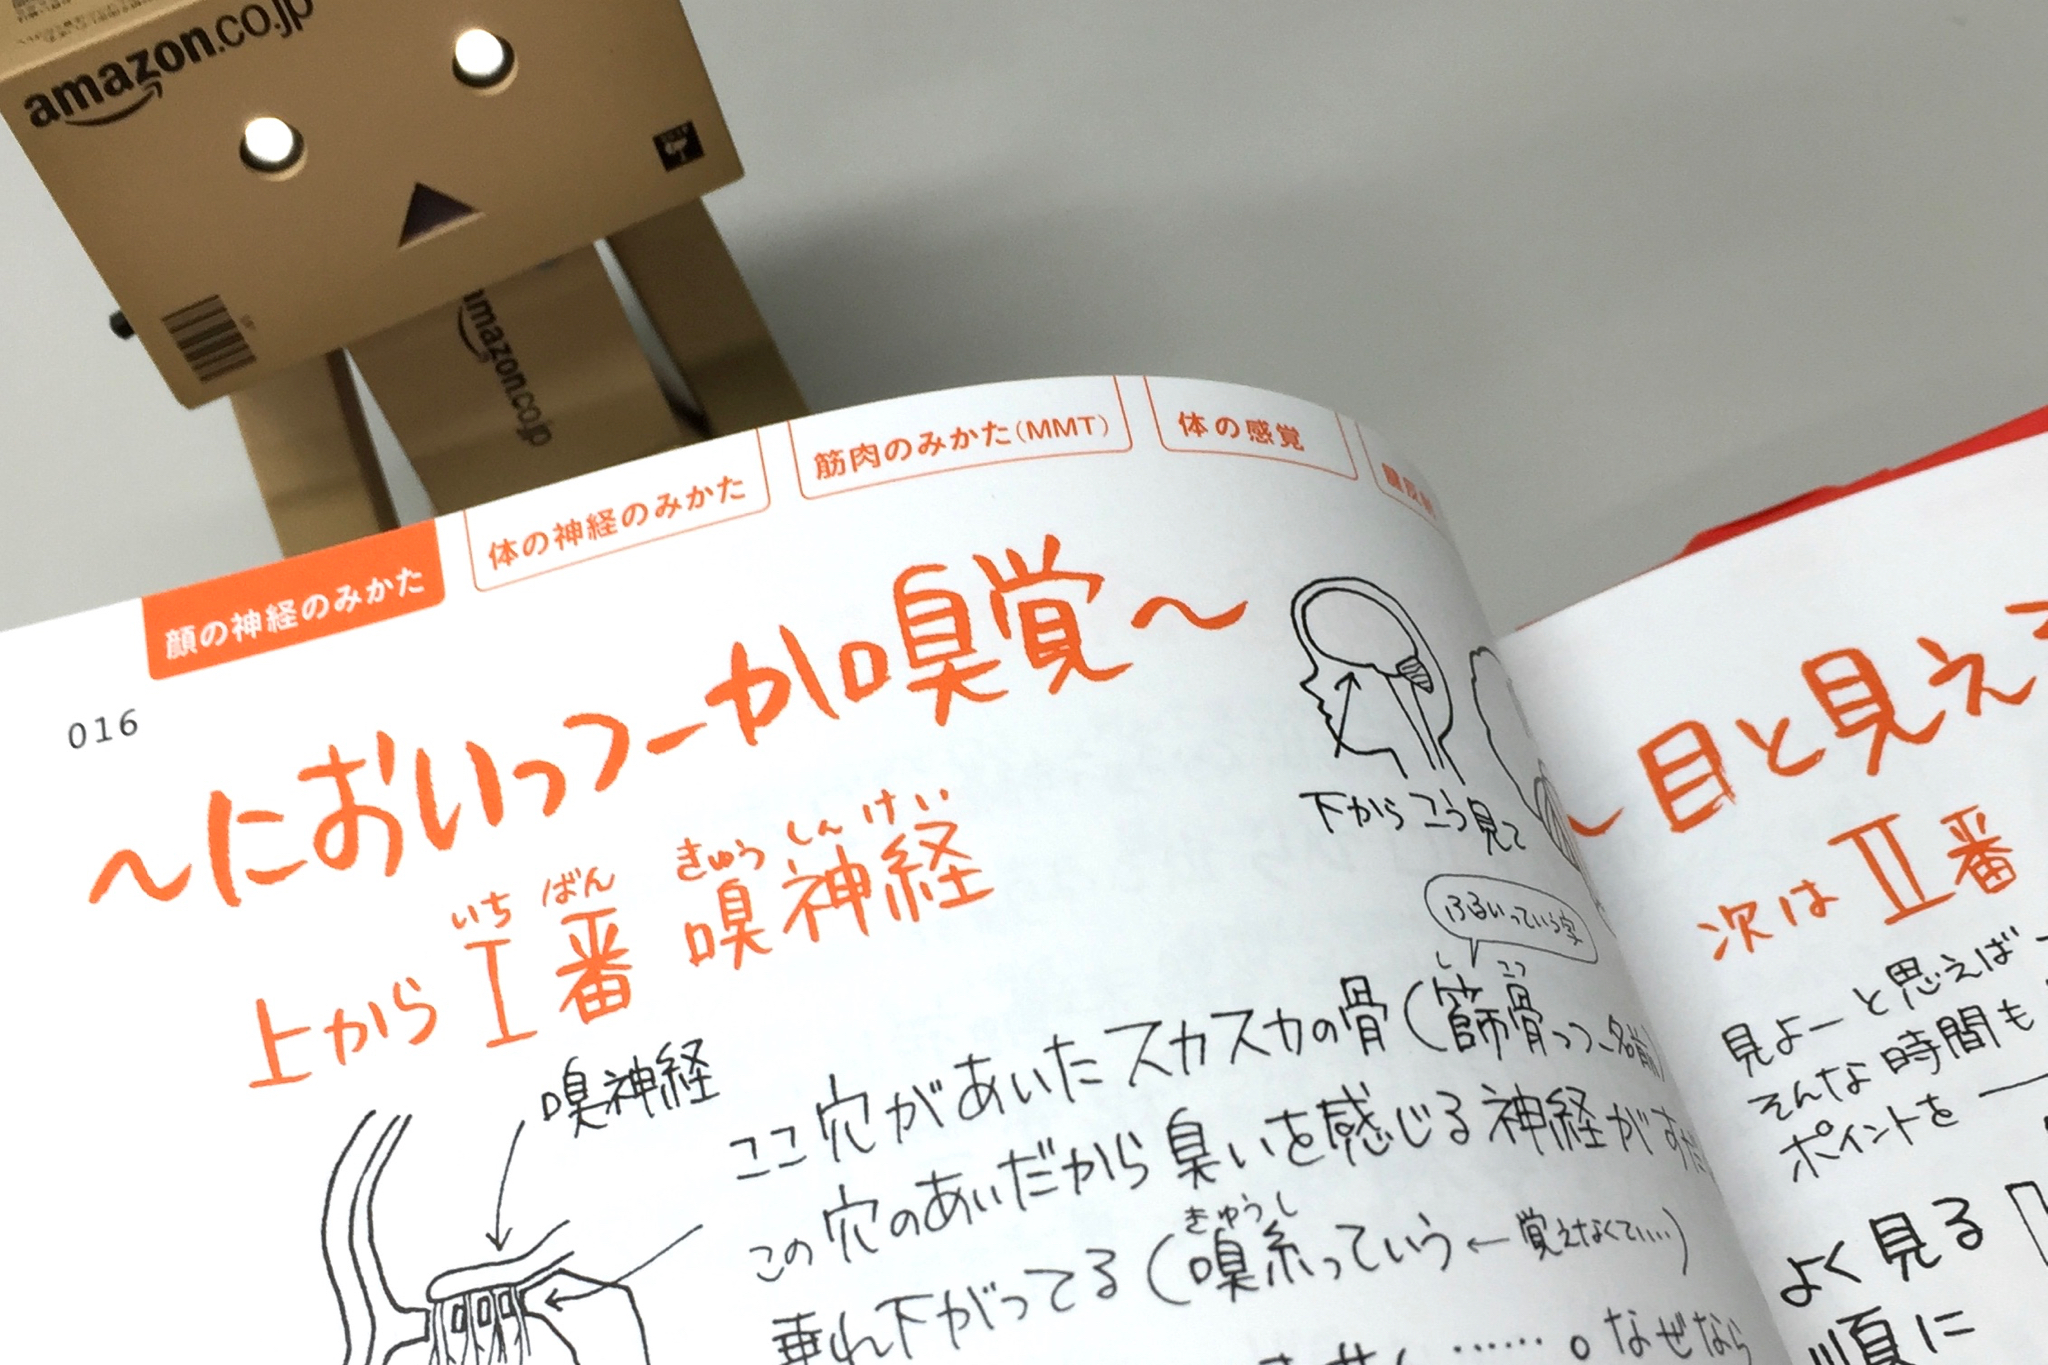 amazon.co.jp
amazon.co.jp
顔の神経のみかた
体の神経のみかた
筋肉のみかた(MMT)
体の感覚
016
〜においっつーか嗅覚〜
下からこう見て
いちばん きゅうしんけい
上からⅠ番 嗅神経
嗅神経
ふるいっていう字
しこつ
ここ穴があいたスカスカの骨(篩骨っつー名前)
この穴のあいだから臭いを感じる神経が
きゅうし
垂れ下がってる(嗅糸っていう←覚えなくてい…)
……。なぜなら
〜目と見え
次はⅡ番
見よーと思えば
そんな時間も
ポイントを
よく見る
順に